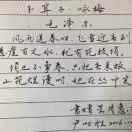 卜算子·咏梅
毛泽东
风雨送春归，飞雪迎春到
悬崖百丈冰，犹有花枝俏。
俏也不争春，只把春来报
山花烂漫时，她在丛中笑